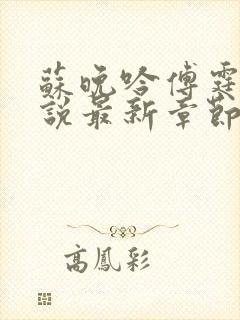 蘇晚吟傅霆
說最新章節
高鳳彩